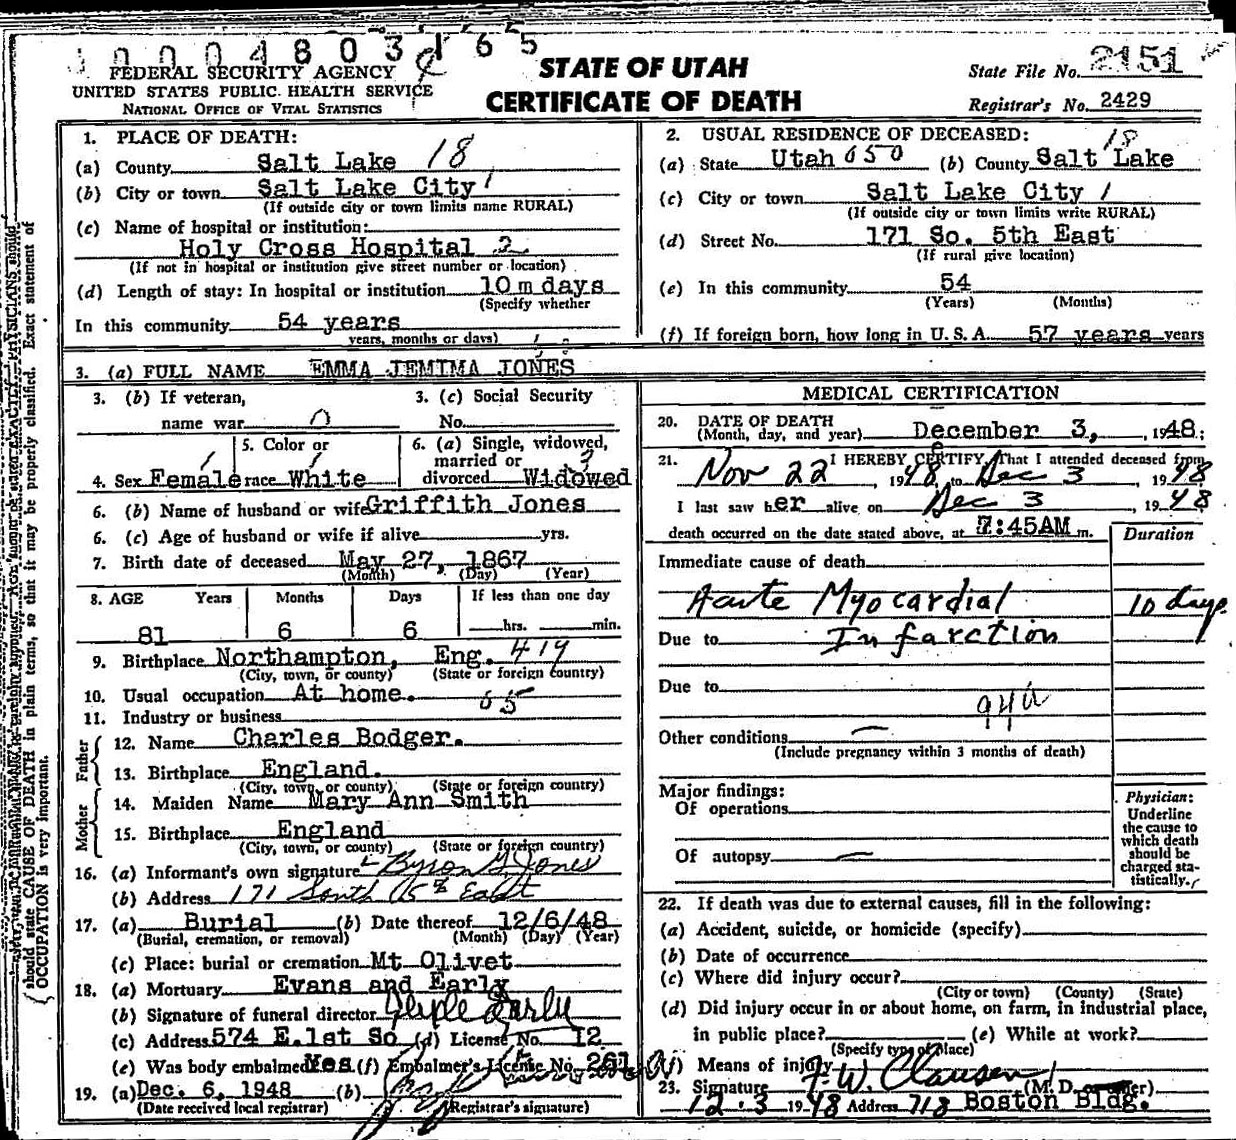 10004803165
FEDERAL SECURITY AGENCY
UNITED STATES PUBLIC HEALTH SERVICE
NATIONAL OFFICE OF VITAL STATISTICS
STATE OF UTAH
CERTIFICATE OF DEATH
State File No. 2151
Registrar's No. 2429
1. PLACE OF DEATH:
(a) County Salt Lake 18
(b) City or town Salt Lake City 1
(If outside city or town limits name RURAL)
(c) Name of hospital or institution:
Holy Cross Hospital 2
(If not in hospital or institution give street number or location)
(d) Length of stay: In hospital or institution 10 m days
(Specify whether
In this community 54 years
years, months or days)
2. USUAL RESIDENCE OF DECEASED:
18
(a) State Utah 050 (b) County Salt Lake
(c) City or town Salt Lake City 1
(If outside city or town limits write RURAL)
(d) Street No. 171 So. 5th East
(If rural give location)
(e) In this community 54
(Years) (Months)
(f) If foreign born, how long in U. S. A. 57 years years
3. (a) FULL NAME EMMA JEMIMA JONES
3. (b) If veteran,
name war 0
3. (c) Social Security
No.
4. Sex Female
5. Color or
race White
6. (a) Single, widowed,
married or
divorced Widowed
6. (b) Name of husband or wife Griffith Jones
6. (c) Age of husband or wife if alive yrs.
7. Birth date of deceased May 27, 1867
(Month) (Day) (Year)
8. AGE Years Months Days If less than one day
81 6 6 hrs. min.
9. Birthplace Northampton, Eng. 419
(City, town, or county) (State or foreign country)
10. Usual occupation At home.
11. Industry or business
Father
12. Name Charles Bodger.
13. Birthplace England.
(City, town, or county) (State or foreign country)
Mother
14. Maiden Name Mary Ann Smith
15. Birthplace England
(City, town, or county) (State or foreign country)
16. (a) Informant's own signature Byron G. Jones
(b) Address 171 South 5th East
17. (a) Burial (b) Date thereof 12/6/48
(Burial, cremation, or removal) (Month) (Day) (Year)
(c) Place: burial or cremation Mt Olivet
18. (a) Mortuary Evans and Early
(b) Signature of funeral director Early
(c) Address 574 E.1st So (d) License No. 12
(e) Was body embalmed Yes (f) Embalmer's License No. 261
19. (a) Dec. 6, 1948 (b)
(Date received local registrar) (Registrar's signature)
MEDICAL CERTIFICATION
20. DATE OF DEATH
(Month, day, and year) December 3, , 1948;
21. I HEREBY CERTIFY, That I attended deceased from
Nov 22 , 1948, to Dec 3 , 1948
I last saw her alive on Dec 3 , 1948
death occurred on the date stated above, at 7:45AM m.
Duration
Immediate cause of death
Acute Myocardial 10 days
Due to Infarction
Due to
94a
Other conditions —
(Include pregnancy within 3 months of death)
Major findings:
Of operations
Of autopsy —
Physician:
Underline
the cause to
which death
should be
charged sta-
tistically.
22. If death was due to external causes, fill in the following:
(a) Accident, suicide, or homicide (specify)
(b) Date of occurrence
(c) Where did injury occur?
(City or town) (County) (State)
(d) Did injury occur in or about home, on farm, in industrial place,
in public place? (e) While at work?
(Specify type of place)
(f) Means of injury
23. Signature F. W. Clausen (M. D. or other)
12-3 1948 Address 718 Boston Bldg.
should state CAUSE OF DEATH in plain terms, so that it may be properly classified. Exact statement of
OCCUPATION is very important.